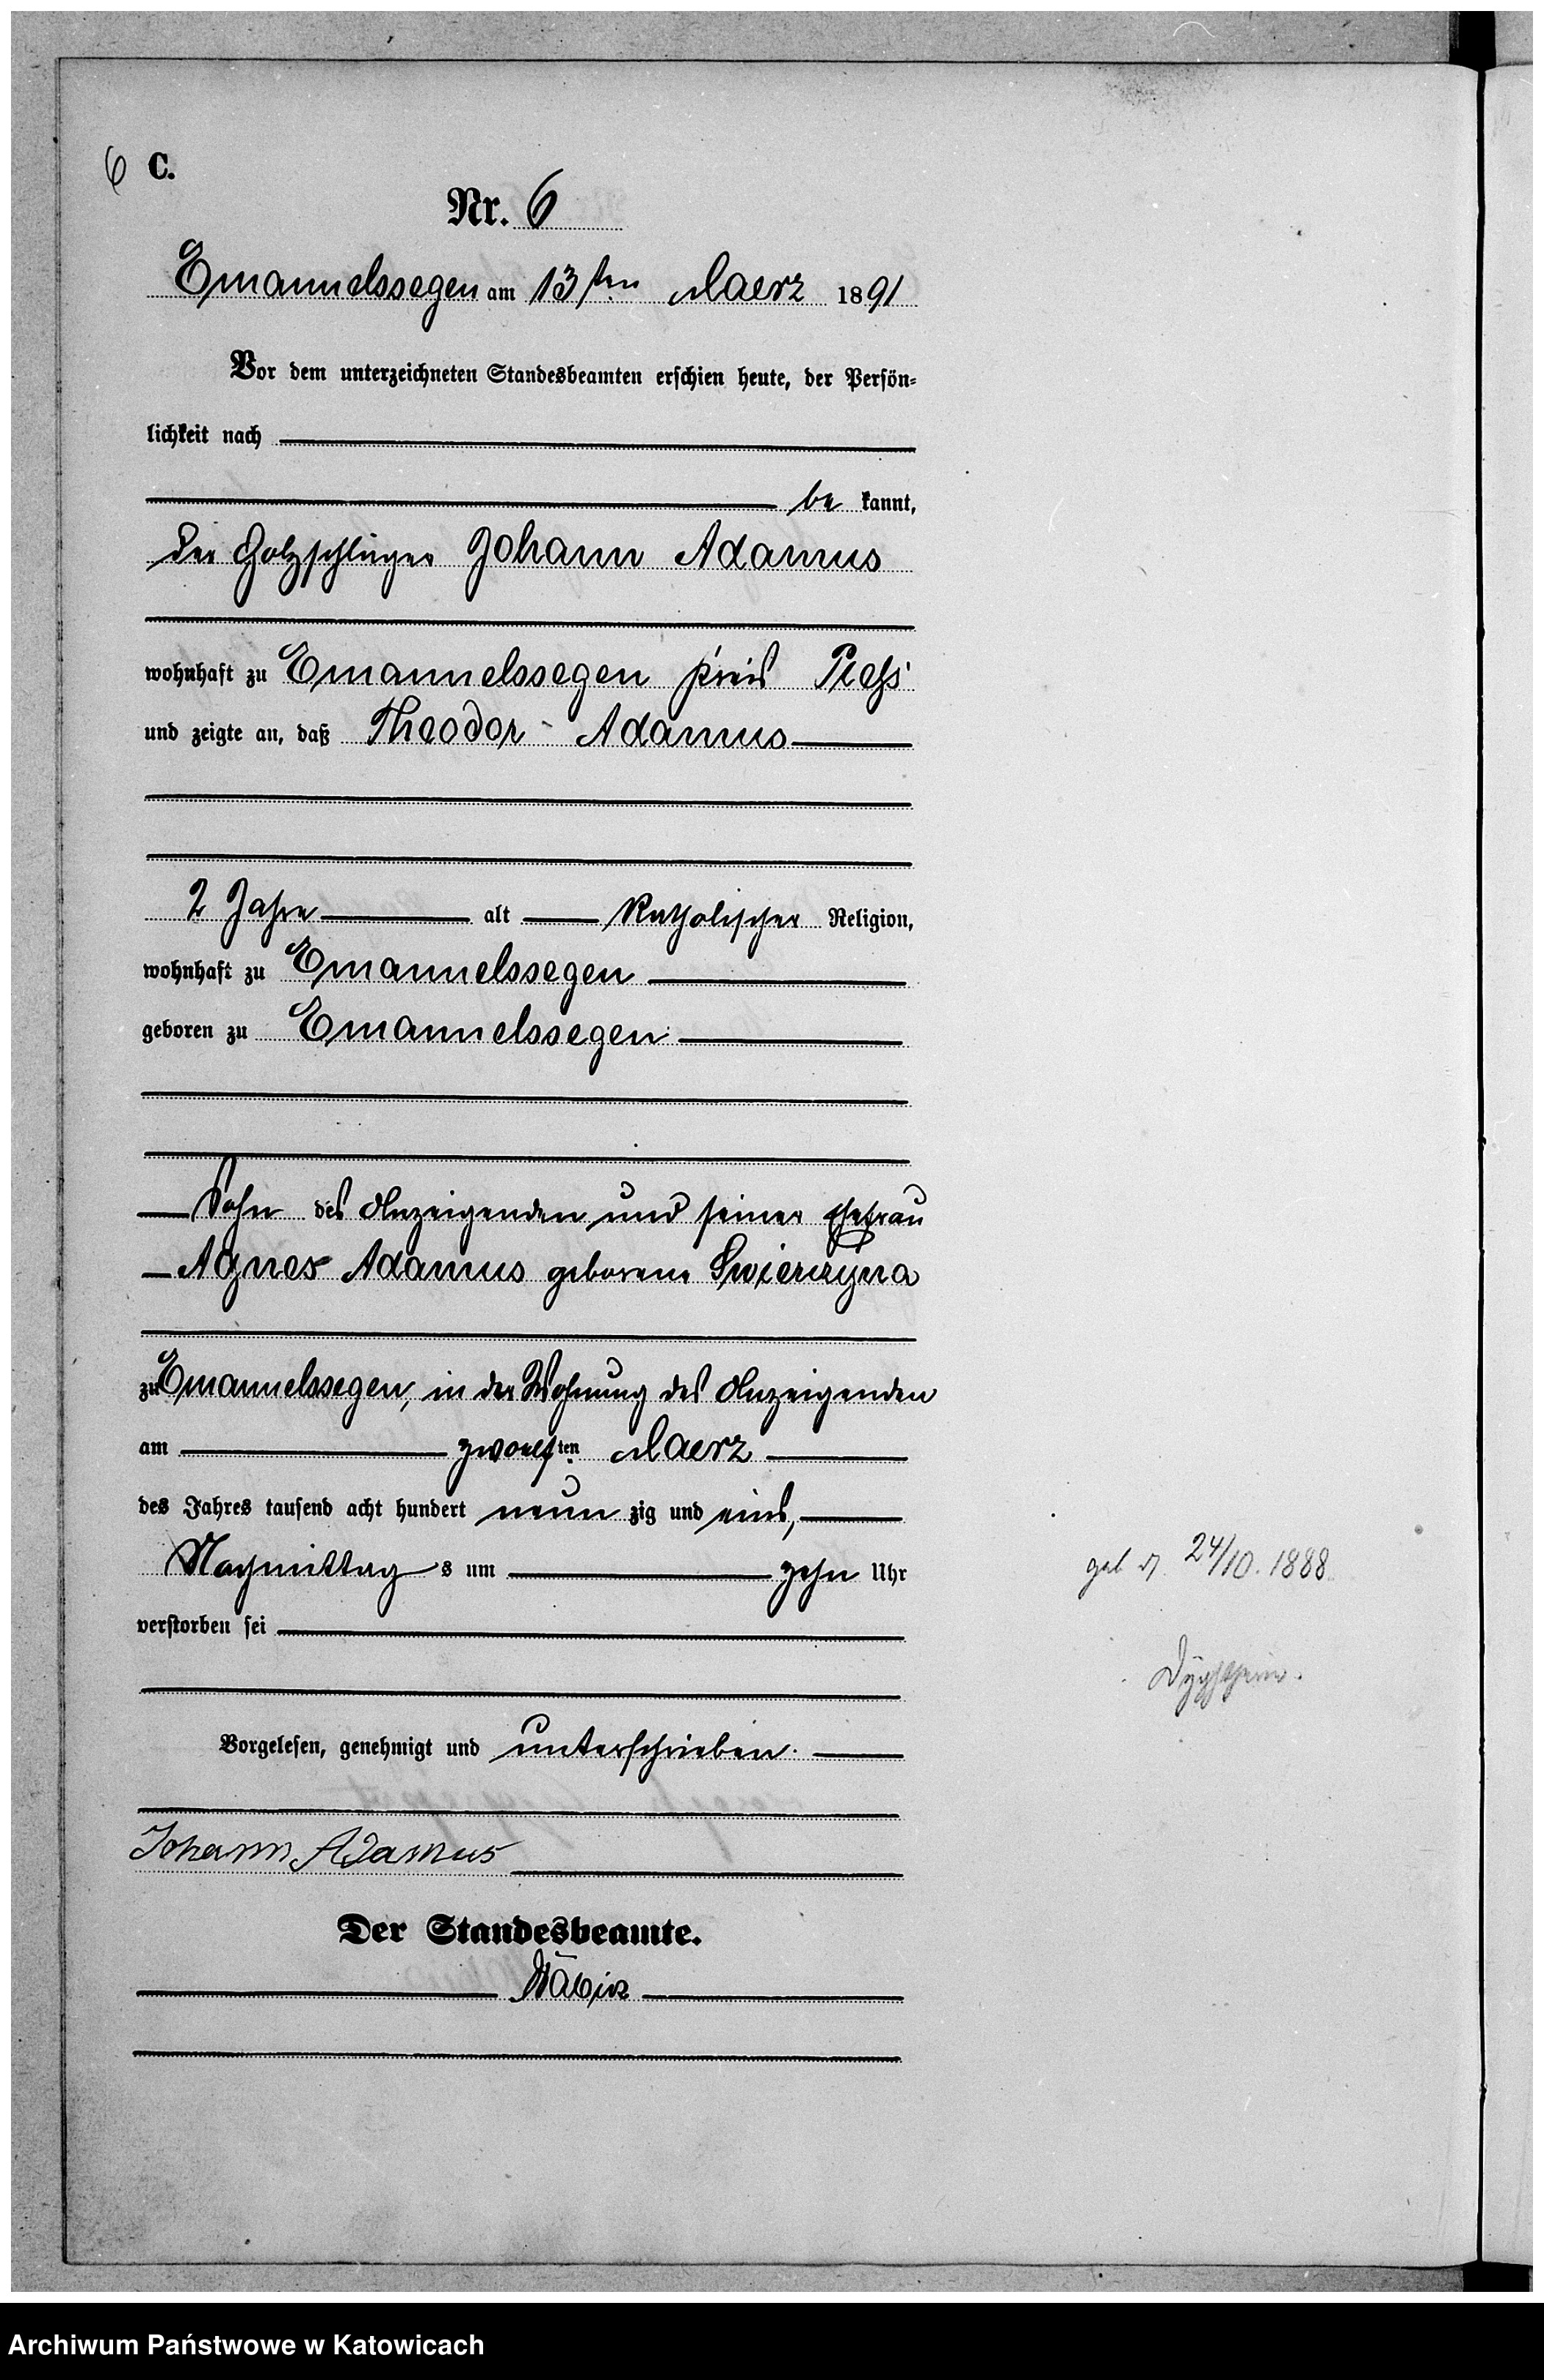 6 C.
Nr. 6
Emanuelssegen am 13ten Maerz 1891
Vor dem unterzeichneten Standesbeamten erschien heute, der Persön-
lichkeit nach
be kannt,
der Holzschläger Johann Adamus
wohnhaft zu Emanuelssegen Kreis Pleß
und zeigte an, daß Theodor Adamus
2 Jahre alt Katholischer Religion,
wohnhaft zu Emanuelssegen
geboren zu Emanuelssegen
Sohn des Anzeigenden und seiner Ehefrau
Agnes Adamus geborene Swierczyna
zu Emanuelssegen, in der Wohnung des Anzeigenden
am zwoelften Maerz
des Jahres tausend acht hundert neun zig und eins,
Nachmittag s um zehn Uhr
verstorben sei
Vorgelesen, genehmigt und unterschrieben.
Johann Adamus
Der Standesbeamte.
geb. d. 24/10. 1888
Archiwum Państwowe w Katowicach